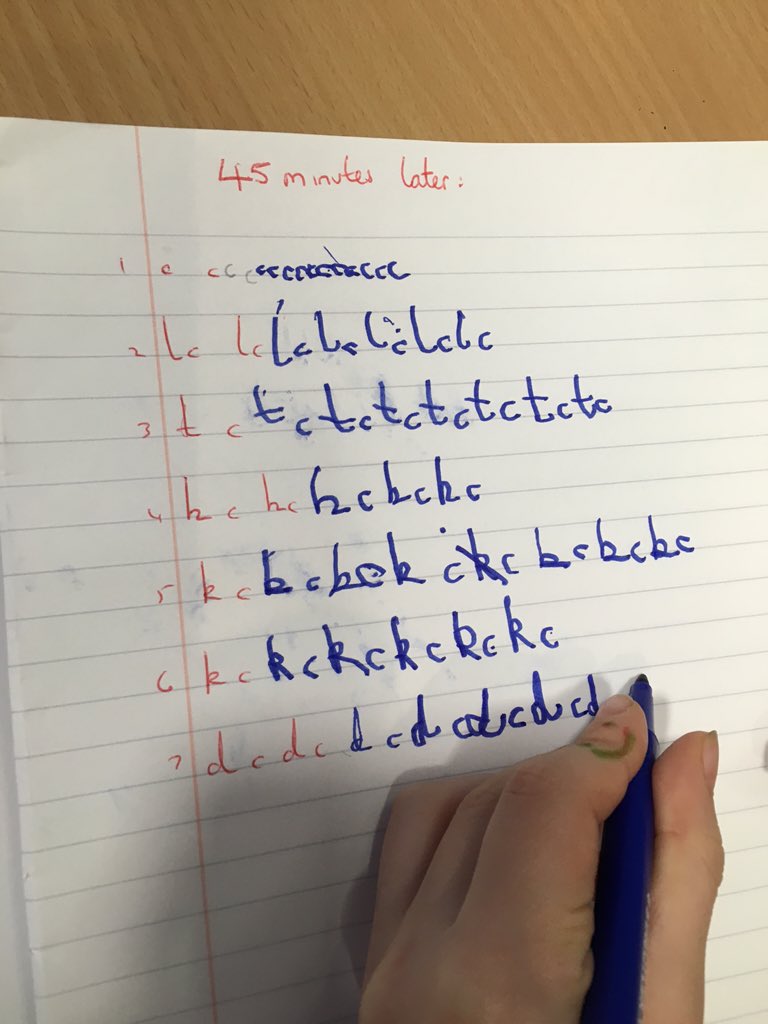 45 minutes later:
1 c c c c c c c c c c c c c c c
2 l c l c l c l c l c l c l c
3 t c t c t c t c t c t c t c t c
4 k c k c k c k c k c
5 k c k c k c k c k c k c k c k c
6 k c k c k c k c k c k c
7 d c d c d c d c d c d c d